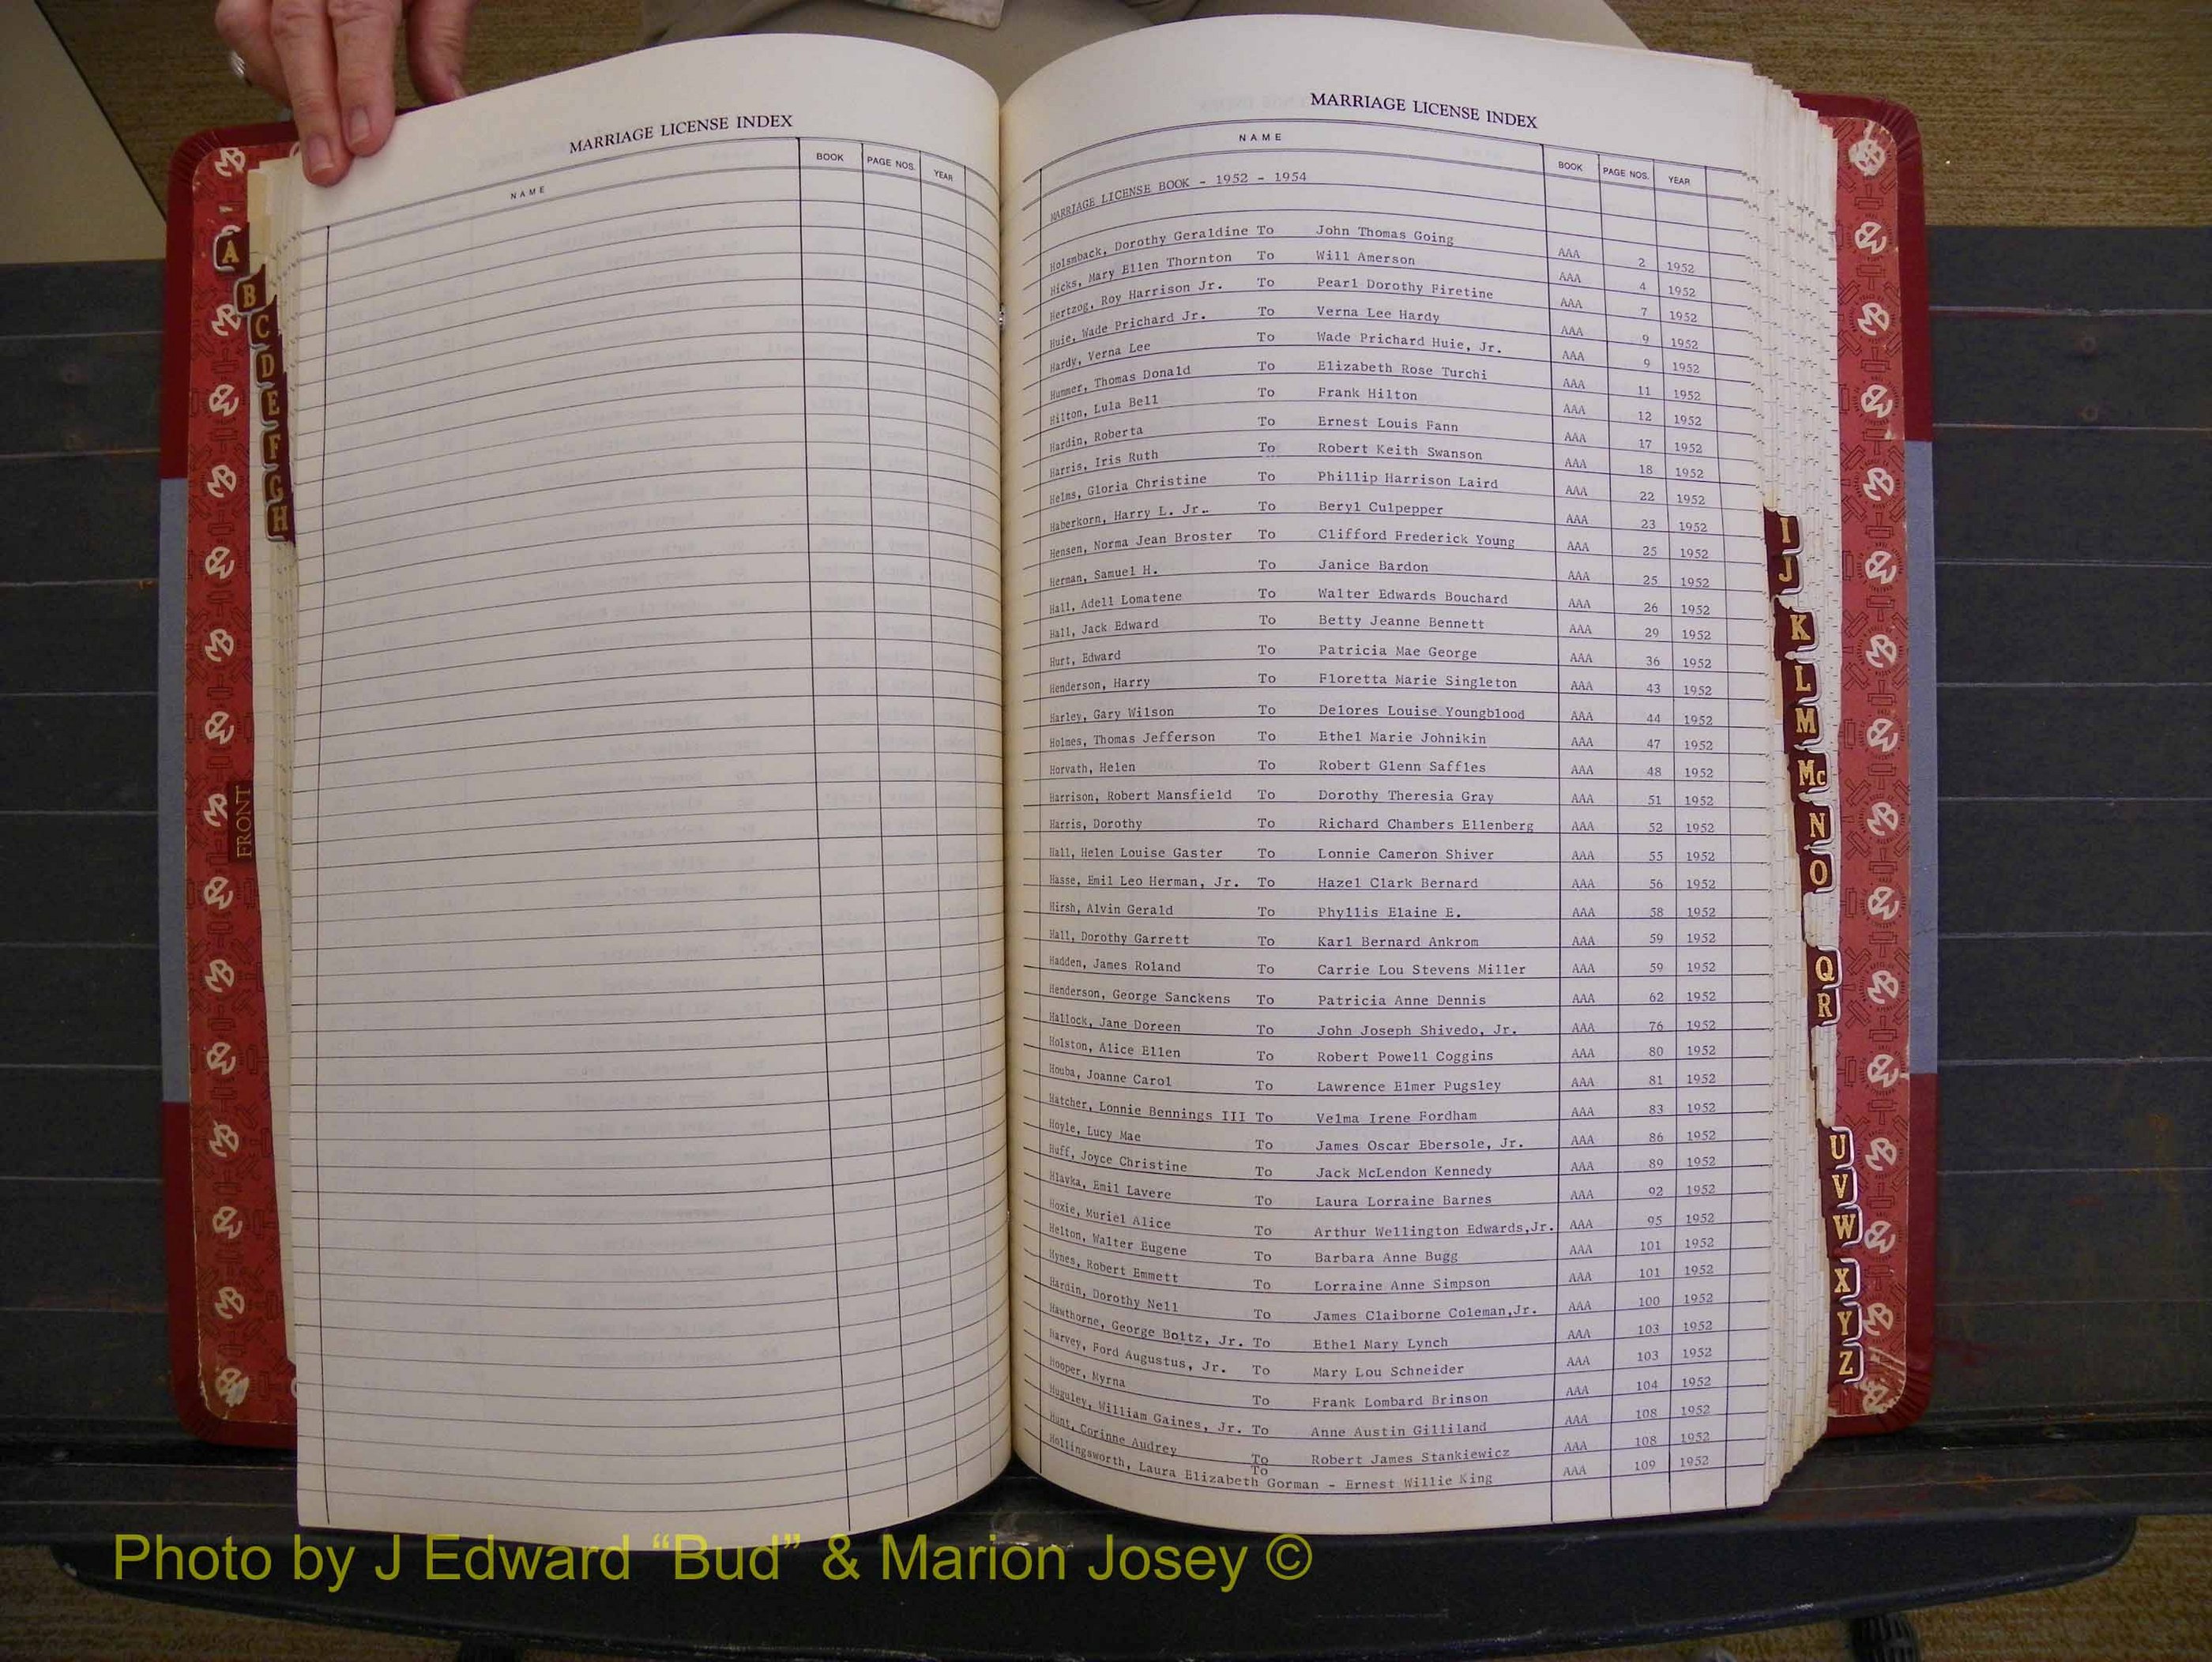 MARRIAGE LICENSE INDEX
NAME BOOK PAGE NOS. YEAR
A
B
C
D
E
F
G
H
FRONT
MARRIAGE LICENSE INDEX
NAME BOOK PAGE NOS. YEAR
MARRIAGE LICENSE BOOK - 1952 - 1954
Holsmback, Dorothy Geraldine To John Thomas Going AAA 2 1952
Hicks, Mary Ellen Thornton To Will Amerson AAA 4 1952
Hertzog, Roy Harrison Jr. To Pearl Dorothy Firetine AAA 7 1952
Huie, Wade Prichard Jr. To Verna Lee Hardy AAA 9 1952
Hardy, Verna Lee To Wade Prichard Huie, Jr. AAA 9 1952
Hummer, Thomas Donald To Elizabeth Rose Turchi AAA 11 1952
Hilton, Lula Bell To Frank Hilton AAA 12 1952
Hardin, Roberta To Ernest Louis Fann AAA 17 1952
Harris, Iris Ruth To Robert Keith Swanson AAA 18 1952
Helms, Gloria Christine To Phillip Harrison Laird AAA 22 1952
Haberkorn, Harry L. Jr. To Beryl Culpepper AAA 23 1952
Hensen, Norma Jean Broster To Clifford Frederick Young AAA 25 1952
Herman, Samuel H. To Janice Bardon AAA 25 1952
Hall, Adell Lomatene To Walter Edwards Bouchard AAA 26 1952
Hall, Jack Edward To Betty Jeanne Bennett AAA 29 1952
Hurt, Edward To Patricia Mae George AAA 36 1952
Henderson, Harry To Floretta Marie Singleton AAA 43 1952
Harley, Gary Wilson To Delores Louise Youngblood AAA 44 1952
Holmes, Thomas Jefferson To Ethel Marie Johnikin AAA 47 1952
Horvath, Helen To Robert Glenn Saffles AAA 48 1952
Harrison, Robert Mansfield To Dorothy Theresia Gray AAA 51 1952
Harris, Dorothy To Richard Chambers Ellenberg AAA 52 1952
Hall, Helen Louise Gaster To Lonnie Cameron Shiver AAA 55 1952
Hasse, Emil Leo Herman, Jr. To Hazel Clark Bernard AAA 56 1952
Hirsh, Alvin Gerald To Phyllis Elaine E. AAA 58 1952
Hall, Dorothy Garrett To Karl Bernard Ankrom AAA 59 1952
Hadden, James Roland To Carrie Lou Stevens Miller AAA 59 1952
Henderson, George Sanckens To Patricia Anne Dennis AAA 62 1952
Hallock, Jane Doreen To John Joseph Shivedo, Jr. AAA 76 1952
Holston, Alice Ellen To Robert Powell Coggins AAA 80 1952
Houba, Joanne Carol To Lawrence Elmer Pugsley AAA 81 1952
Hatcher, Lonnie Bennings III To Velma Irene Fordham AAA 83 1952
Hoyle, Lucy Mae To James Oscar Ebersole, Jr. AAA 86 1952
Huff, Joyce Christine To Jack McLendon Kennedy AAA 89 1952
Hlavka, Emil Lavere To Laura Lorraine Barnes AAA 92 1952
Hoxie, Muriel Alice To Arthur Wellington Edwards,Jr. AAA 95 1952
Helton, Walter Eugene To Barbara Anne Bugg AAA 101 1952
Hynes, Robert Emmett To Lorraine Anne Simpson AAA 101 1952
Hardin, Dorothy Nell To James Claiborne Coleman,Jr. AAA 100 1952
Hawthorne, George Boltz, Jr. To Ethel Mary Lynch AAA 103 1952
Harvey, Ford Augustus, Jr. To Mary Lou Schneider AAA 103 1952
Hooper, Myrna To Frank Lombard Brinson AAA 104 1952
Huguley, William Gaines, Jr. To Anne Austin Gilliland AAA 108 1952
Hunt, Corinne Audrey To Robert James Stankiewicz AAA 108 1952
To
Hollingsworth, Laura Elizabeth Gorman - Ernest Willie King AAA 109 1952
I
J
K
L
M
Mc
N
O
Q
R
U
V
W
X
Y
Z
Photo by J Edward “Bud” & Marion Josey ©